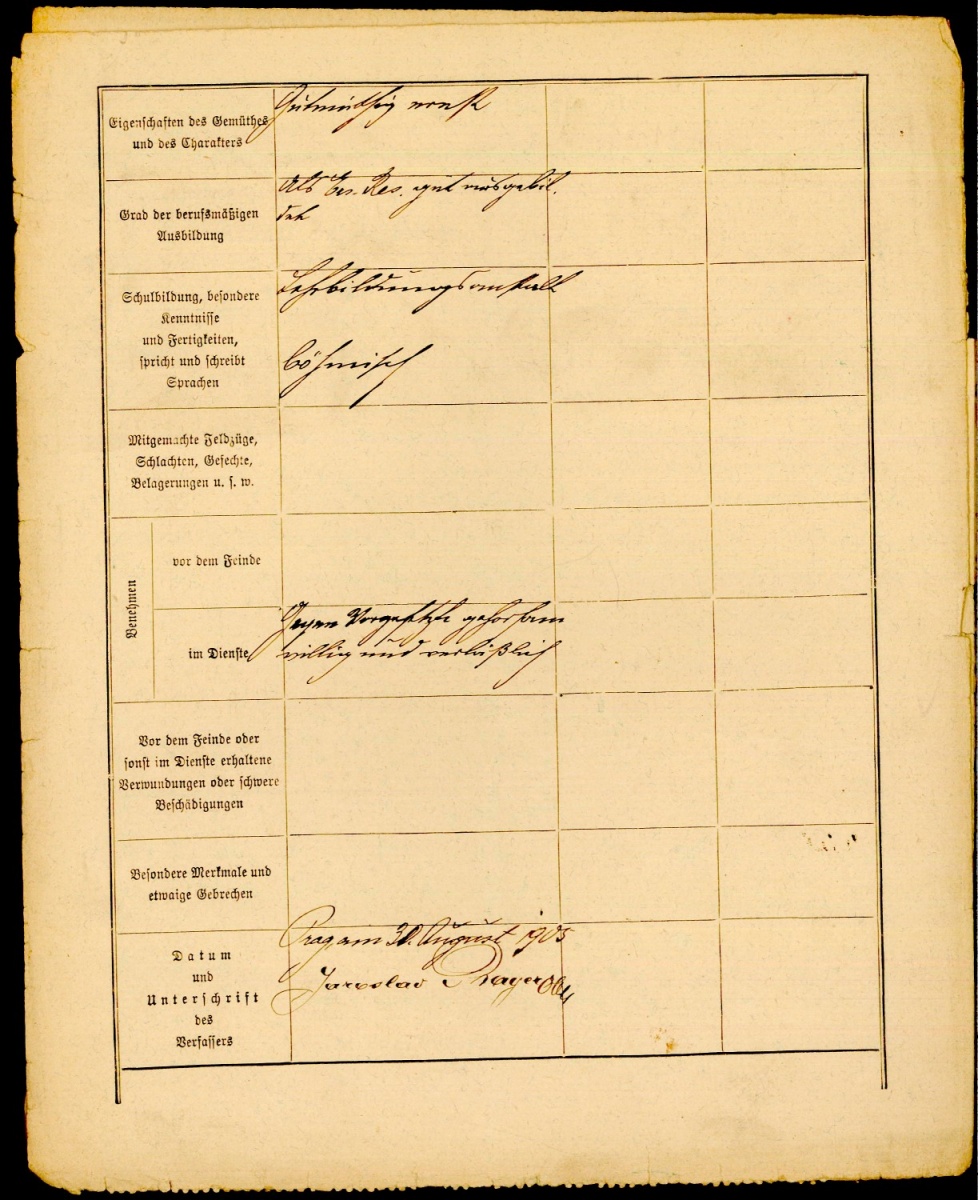 Eigenschaften des Gemüthes
und des Charakters
Gutmüthig ernst
Grad der berufsmäßigen
Ausbildung
Als Ers. Res. gut ausgebil.
det
Schulbildung, besondere
Kenntnisse
und Fertigkeiten,
spricht und schreibt
Sprachen
Lehrbildungsanstalt
böhmisch
Mitgemachte Feldzüge,
Schlachten, Gefechte,
Belagerungen u. s. w.
Benehmen
vor dem Feinde
im Dienste
Gegen Vorgesetzte gehorsam
willig und verläßlich
Vor dem Feinde oder
sonst im Dienste erhaltene
Verwundungen oder schwere
Beschädigungen
Besondere Merkmale und
etwaige Gebrechen
Datum
und
Unterschrift
des
Verfassers
Prag, am 30. August 1905
Jaroslav Prager